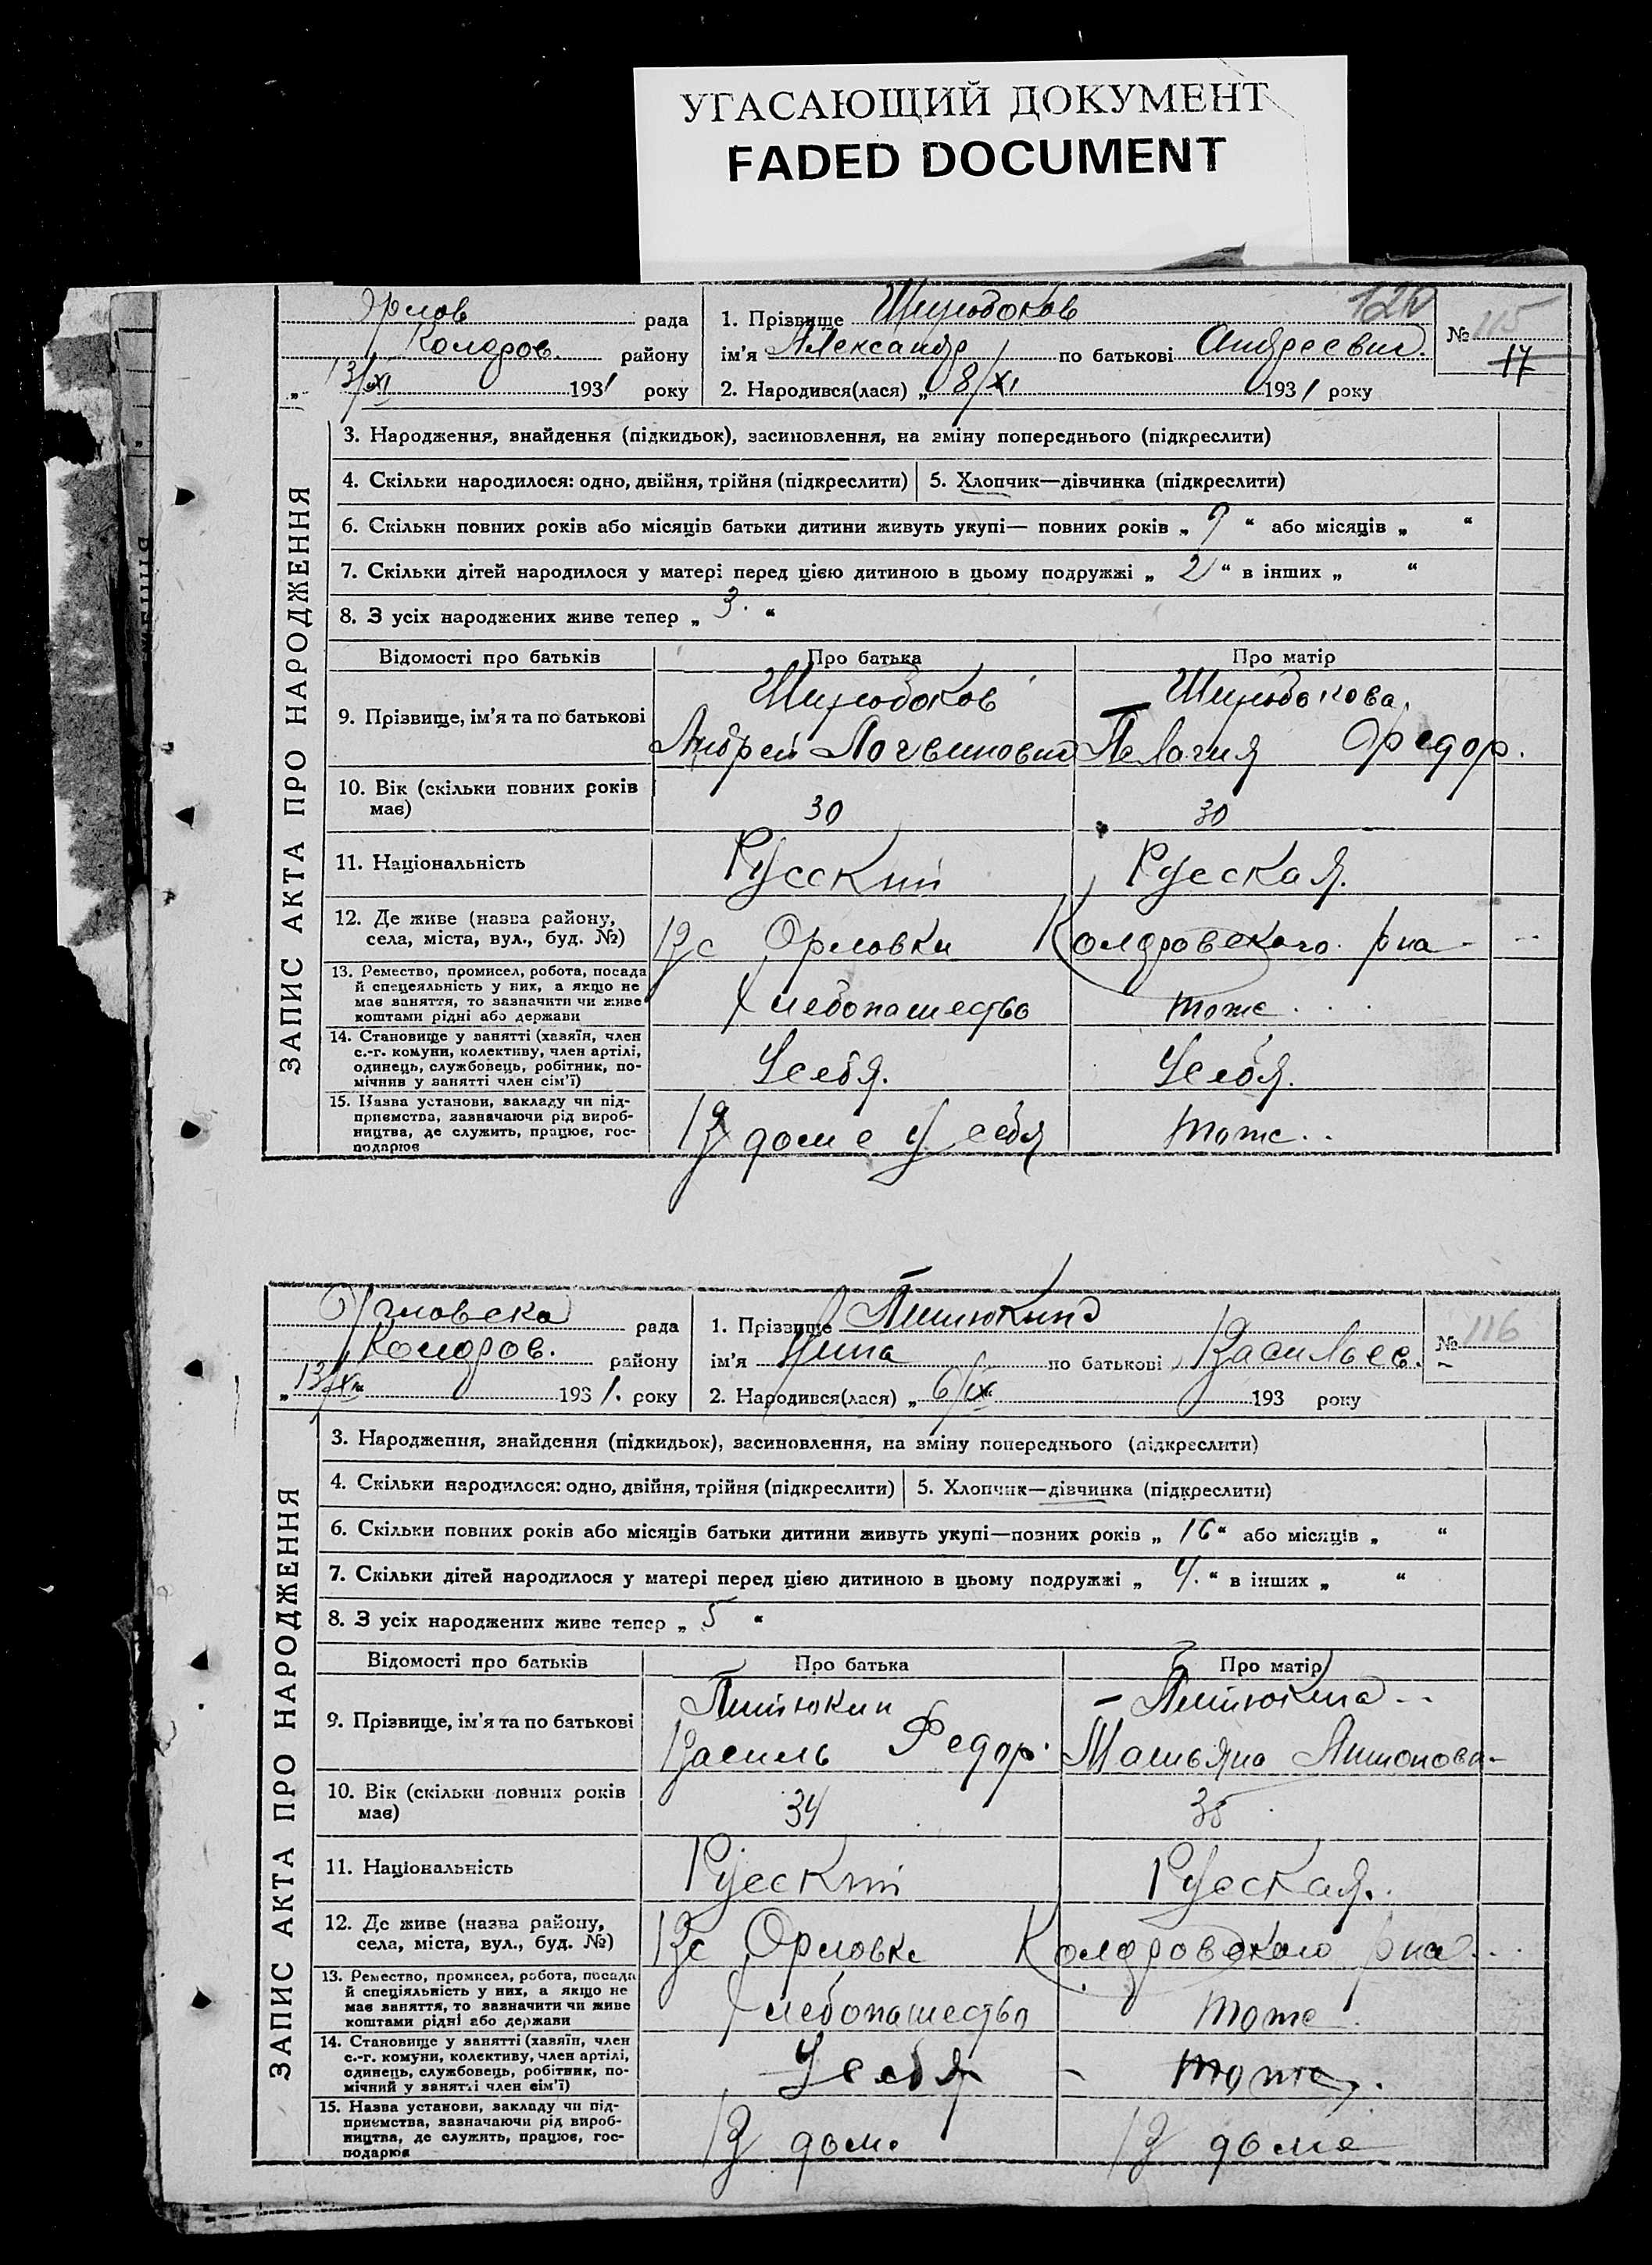 УГАСАЮЩИЙ ДОКУМЕНТ
FADED DOCUMENT
ЗАПИС АКТА ПРО НАРОДЖЕННЯ
Орлов рада
Колоров. району
„ 13/XI 1931 року
1. Прізвище
ім'я Александр по батькові Андреевич.
2. Народився(лася) „ 8/XI 1931 року
120
№ 115
17
3. Народження, знайдення (підкидьок), засиновлення, на зміну попереднього (підкреслити)
4. Скільки народилося: одно, двійня, трійня (підкреслити) 5. Хлопчик—дівчинка (підкреслити)
6. Скільки повних років або місяців батьки дитини живуть укупі— повних років „ 9 “ або місяців „ “
7. Скільки дітей народилося у матері перед цією дитиною в цьому подружжі „ 2 “ в інших „ “
8. З усіх народжених живе тепер „ 3. “
Відомості про батьків Про батька Про матір
9. Прізвище, ім'я та по батькові
Андрей Логвинович Пелагия Федор.
10. Вік (скільки повних років
має)
30 30
11. Національність Русский Русская.
12. Де живе (назва району,
села, міста, вул., буд. №)
В с Орловки Колоровского р на
13. Ремество, промисел, робота, посада
й спецеяльність у них, а якщо не
має заняття, то зазначити чи живе
коштами рідні або держави
Хлебопашество тоже . . .
14. Становище у занятті (хазяїн, член
с.-г. комуни, колективу, член артілі,
одинець, службовець, робітник, по-
мічник у занятті член сім'ї)
У себя. У себя.
15. Назва установи, закладу чи під-
приємства, зазначаючи рід вироб-
ництва, де служить, працює, гос-
подарює
В доме у себя тоже . .
ЗАПИС АКТА ПРО НАРОДЖЕННЯ
рада
Колоров. району
„ 13/XI 1931. року
1. Прізвище
ім'я Нина по батькові Васильев.
2. Народився(лася) „ 6/IX 193 року
№ 116
3. Народження, знайдення (підкидьок), засиновлення, на зміну попереднього (підкреслити)
4. Скільки народилося: одно, двійня, трійня (підкреслити) 5. Хлопчик—дівчинка (підкреслити)
6. Скільки повних років або місяців батьки дитини живуть укупі—повних років „ 16 “ або місяців „ “
7. Скільки дітей народилося у матері перед цією дитиною в цьому подружжі „ 4. “ в інших „ “
8. З усіх народжених живе тепер „ 5 “
Відомості про батьків Про батька Про матір
9. Прізвище, ім'я та по батькові
Василь Федор. Антонов
10. Вік (скільки повних років
має)
34 35
11. Національність Русский Русская.
12. Де живе (назва району,
села, міста, вул., буд. №)
В с Орловке Колоровского р на
13. Ремество, промисел, робота, посада
й спеціяльність у них, а якщо не
має заняття, то зазначити чи живе
коштами рідні або держави
Хлебопашество тоже.
14. Становище у занятті (хазяїн, член
с.-г. комуни, колективу, член артілі,
одинець, службовець, робітник, по-
мічний у занятті член сім'ї)
У себя – тоже.
15. Назва установи, закладу чи під-
приємства, зазначаючи рід вироб-
ництва, де служить, працює, гос-
подарює
В доме В доме